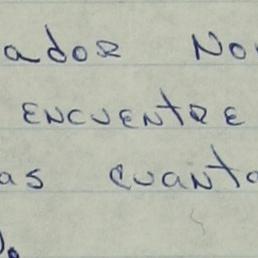 ador No
encuentre
as cuanta